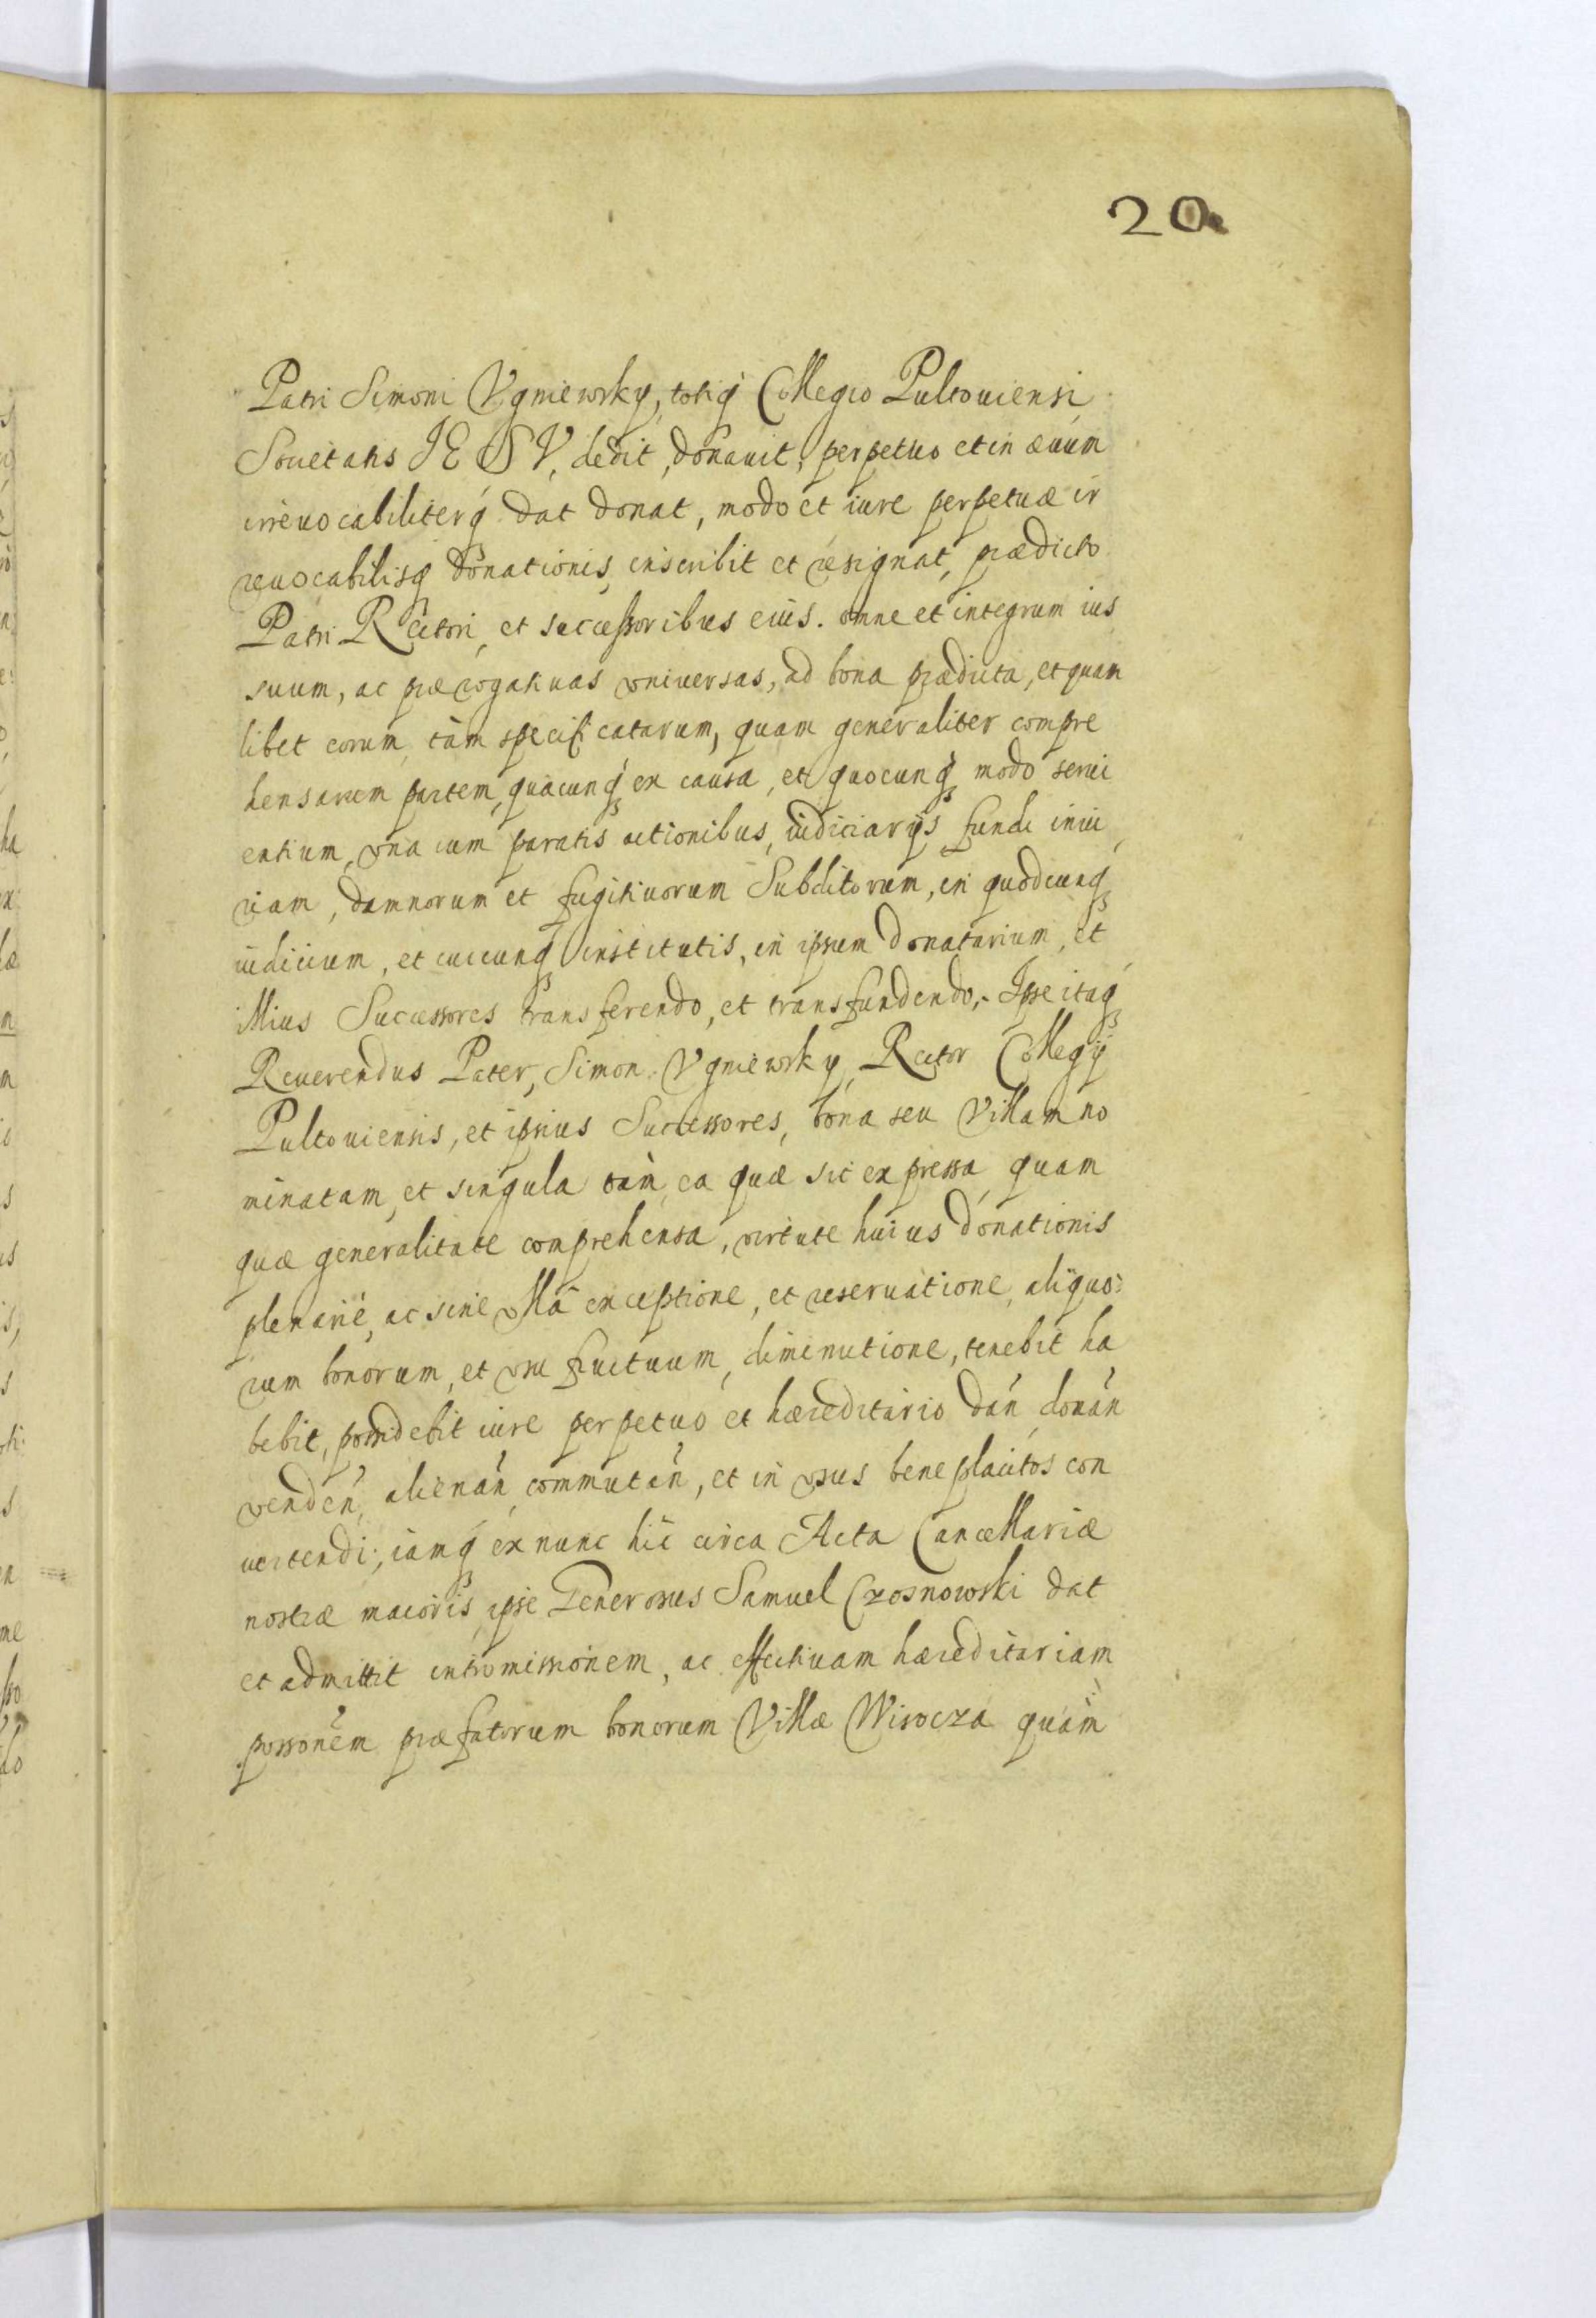 20
Patri Simoni Vgniewsky, totiq́ Collegio Pultouiensi
Societatis IESV, dedit, donauit, perpetuo et in æuum
irreuocabiliterq́ dat donat, modo et iure perpetuæ ir
reuocabilisq́ donationis, inscribit et resignat, prædicto
Patri Rectori, et successoribus eius. omne et integrum ius
suum, ac prærogatiuas vniuersas, ad bona prædicta, et quam
libet eorum, tàm specificatarum, quam generaliter compre
hensarum partem, quacunq́ ex causa, et quocunq́ modo serui
entium, vna cum paratis actionibus, iudiciarijs fundi iniu
riam, damnorum et fugitiuorum Subditorum, in quodcunq́
iudicium, et cuicunq́ institutis, in ipsum donatarium, et
illius Successores transferendo, et transfundendo, Ipse itaq́
Reuerendus Pater, Simon Vgniewsky, Rector Collegij
Pultouiensis, et ipsius Successores, bona seu Villam no
minatam, et singula tàm ea quæ sic expressa, quam
quæ generalitate comprehensa, virtute huius donationis
plenariè, ac sine vllâ exceptione, et reseruatione, aliquo:
rum bonorum, et vsu fructuum, diminutione, tenebit ha
bebit, possidebit iure perpetuo et hæreditario dań donań
vendeń, alienań, commutań, et in vsus beneplacitos con
uertendi, iamq́ ex nunc hîc circa Acta Cancellariæ
nostræ maioris, ipse Generosus Samuel Czosnowski dat
et admittit intromissionem, ac effectiuam hæreditariam
possonem præfatorum bonorum Villæ Wisocza quàm